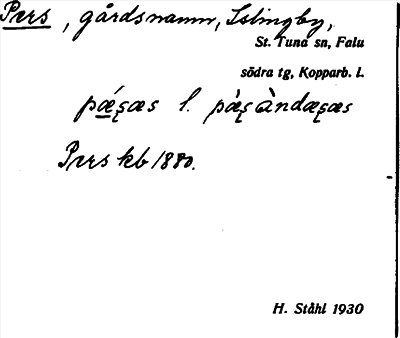 Pers, gårdsnamn, Islingby,
St. Tuna sn, Falu
södra tg, Kopparb. l.
pǽs̨æs l. pæ̀s̨ àndæs̨æs
Pers kb 1880.
H. Ståhl 1930